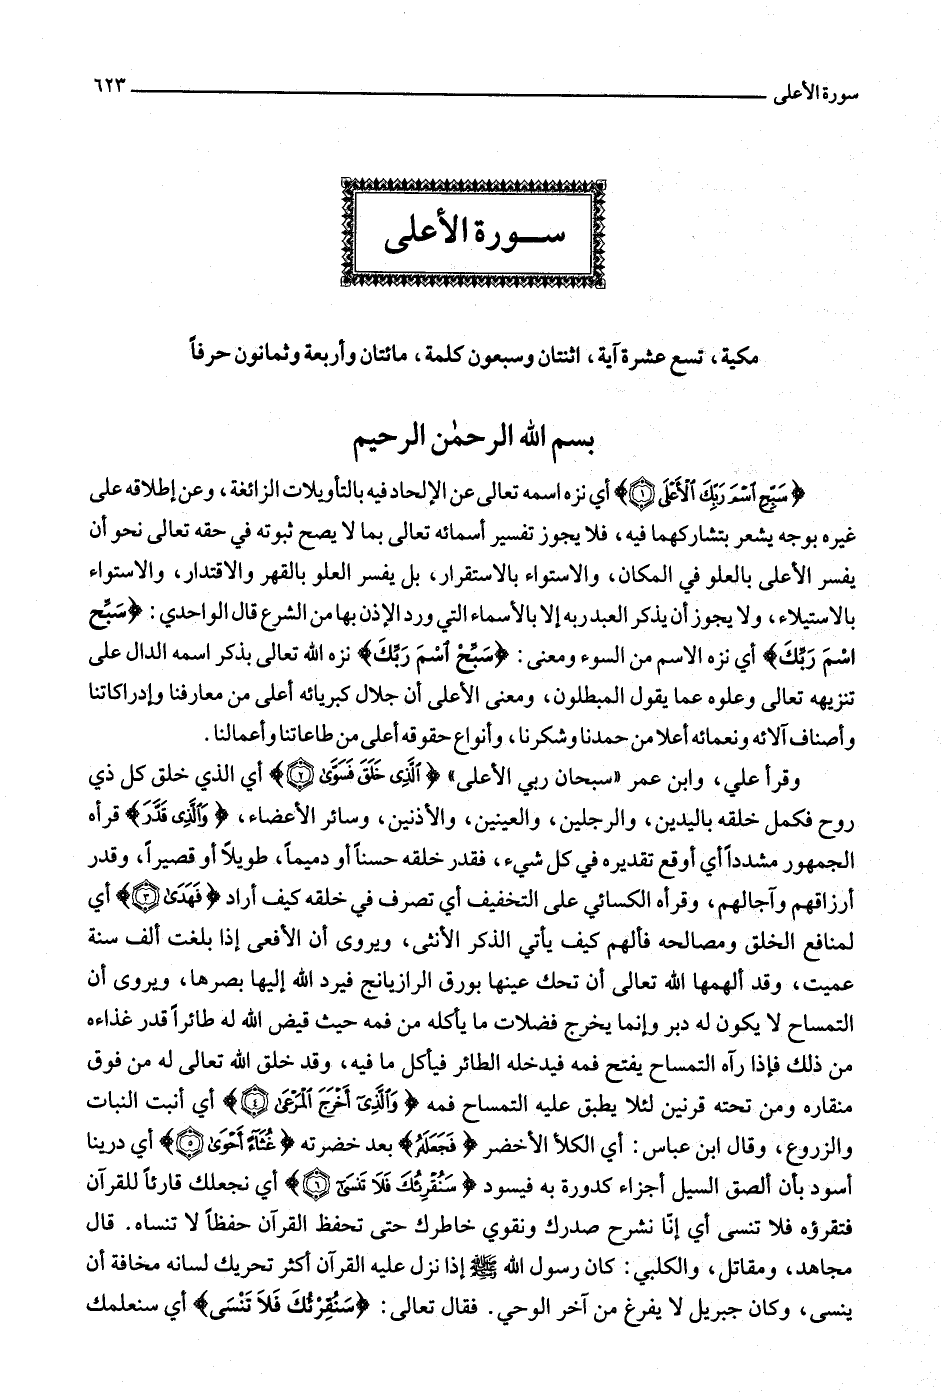 سورة الأعلى ٦٢٣
ســورة الأعلى
مكية، تسع عشرة آية، اثنتان وسبعون كلمة، مائتان وأربعة وثمانون حرفاً
بسم الله الرحمٰن الرحيم
﴿سَبِّحِ ٱسْمَ رَبِّكَ ٱلْأَعْلَى ۝١﴾ أي نزه اسمه تعالى عن الإلحاد فيه بالتأويلات الزائغة، وعن إطلاقه على
غيره بوجه يشعر بتشاركهما فيه، فلا يجوز تفسير أسمائه تعالى بما لا يصح ثبوته في حقه تعالى نحو أن
يفسر الأعلى بالعلو في المكان، والاستواء بالاستقرار، بل يفسر العلو بالقهر والاقتدار، والاستواء
بالاستيلاء، ولا يجوز أن يذكر العبد ربه إلا بالأسماء التي ورد الإذن بها من الشرع قال الواحدي: ﴿سَبِّح
اسْمَ رَبِّكَ﴾ أي نزه الاسم من السوء ومعنى: ﴿سَبِّحْ ٱسْمَ رَبِّكَ﴾ نزه الله تعالى بذكر اسمه الدال على
تنزيهه تعالى وعلوه عما يقول المبطلون، ومعنى الأعلى أن جلال كبريائه أعلى من معارفنا وإدراكاتنا
وأصناف آلائه ونعمائه أعلا من حمدنا وشكرنا، وأنواع حقوقه أعلى من طاعاتنا وأعمالنا.
وقرأ علي، وابن عمر «سبحان ربي الأعلى» ﴿ٱلَّذِى خَلَقَ فَسَوَّىٰ ۝٢﴾ أي الذي خلق كل ذي
روح فكمل خلقه باليدين، والرجلين، والعينين، والأذنين، وسائر الأعضاء، ﴿وَٱلَّذِى قَدَّرَ﴾ قرأه
الجمهور مشدداً أي أوقع تقديره في كل شيء، فقدر خلقه حسناً أو دميماً، طويلاً أو قصيراً، وقدر
أرزاقهم وآجالهم، وقرأه الكسائي على التخفيف أي تصرف في خلقه كيف أراد ﴿فَهَدَىٰ ۝٣﴾ أي
لمنافع الخلق ومصالحه فألهم كيف يأتي الذكر الأنثى، ويروى أن الأفعى إذا بلغت ألف سنة
عميت، وقد ألهمها الله تعالى أن تحك عينها بورق الرازيانج فيرد الله إليها بصرها، ويروى أن
التمساح لا يكون له دبر وإنما يخرج فضلات ما يأكله من فمه حيث قيض الله له طائراً قدر غذاءه
من ذلك فإذا رآه التمساح يفتح فمه فيدخله الطائر فيأكل ما فيه، وقد خلق الله تعالى له من فوق
منقاره ومن تحته قرنين لئلا يطبق عليه التمساح فمه ﴿وَٱلَّذِىٓ أَخْرَجَ ٱلْمَرْعَىٰ ۝٤﴾ أي أنبت النبات
والزروع، وقال ابن عباس: أي الكلأ الأخضر ﴿فَجَعَلَهُۥ﴾ بعد خضرته ﴿غُثَآءً أَحْوَىٰ ۝٥﴾ أي درينا
أسود بأن ألصق السيل أجزاء كدورة به فيسود ﴿سَنُقْرِئُكَ فَلَا تَنسَىٰٓ ۝٦﴾ أي نجعلك قارئاً للقرآن
فتقرؤه فلا تنسى أي إنّا نشرح صدرك ونقوي خاطرك حتى تحفظ القرآن حفظاً لا تنساه. قال
مجاهد، ومقاتل، والكلبي: كان رسول الله ﷺ إذا نزل عليه القرآن أكثر تحريك لسانه مخافة أن
ينسى، وكان جبريل لا يفرغ من آخر الوحي. فقال تعالى: ﴿سَنُقْرِئُكَ فَلاَ تَنْسَى﴾ أي سنعلمك